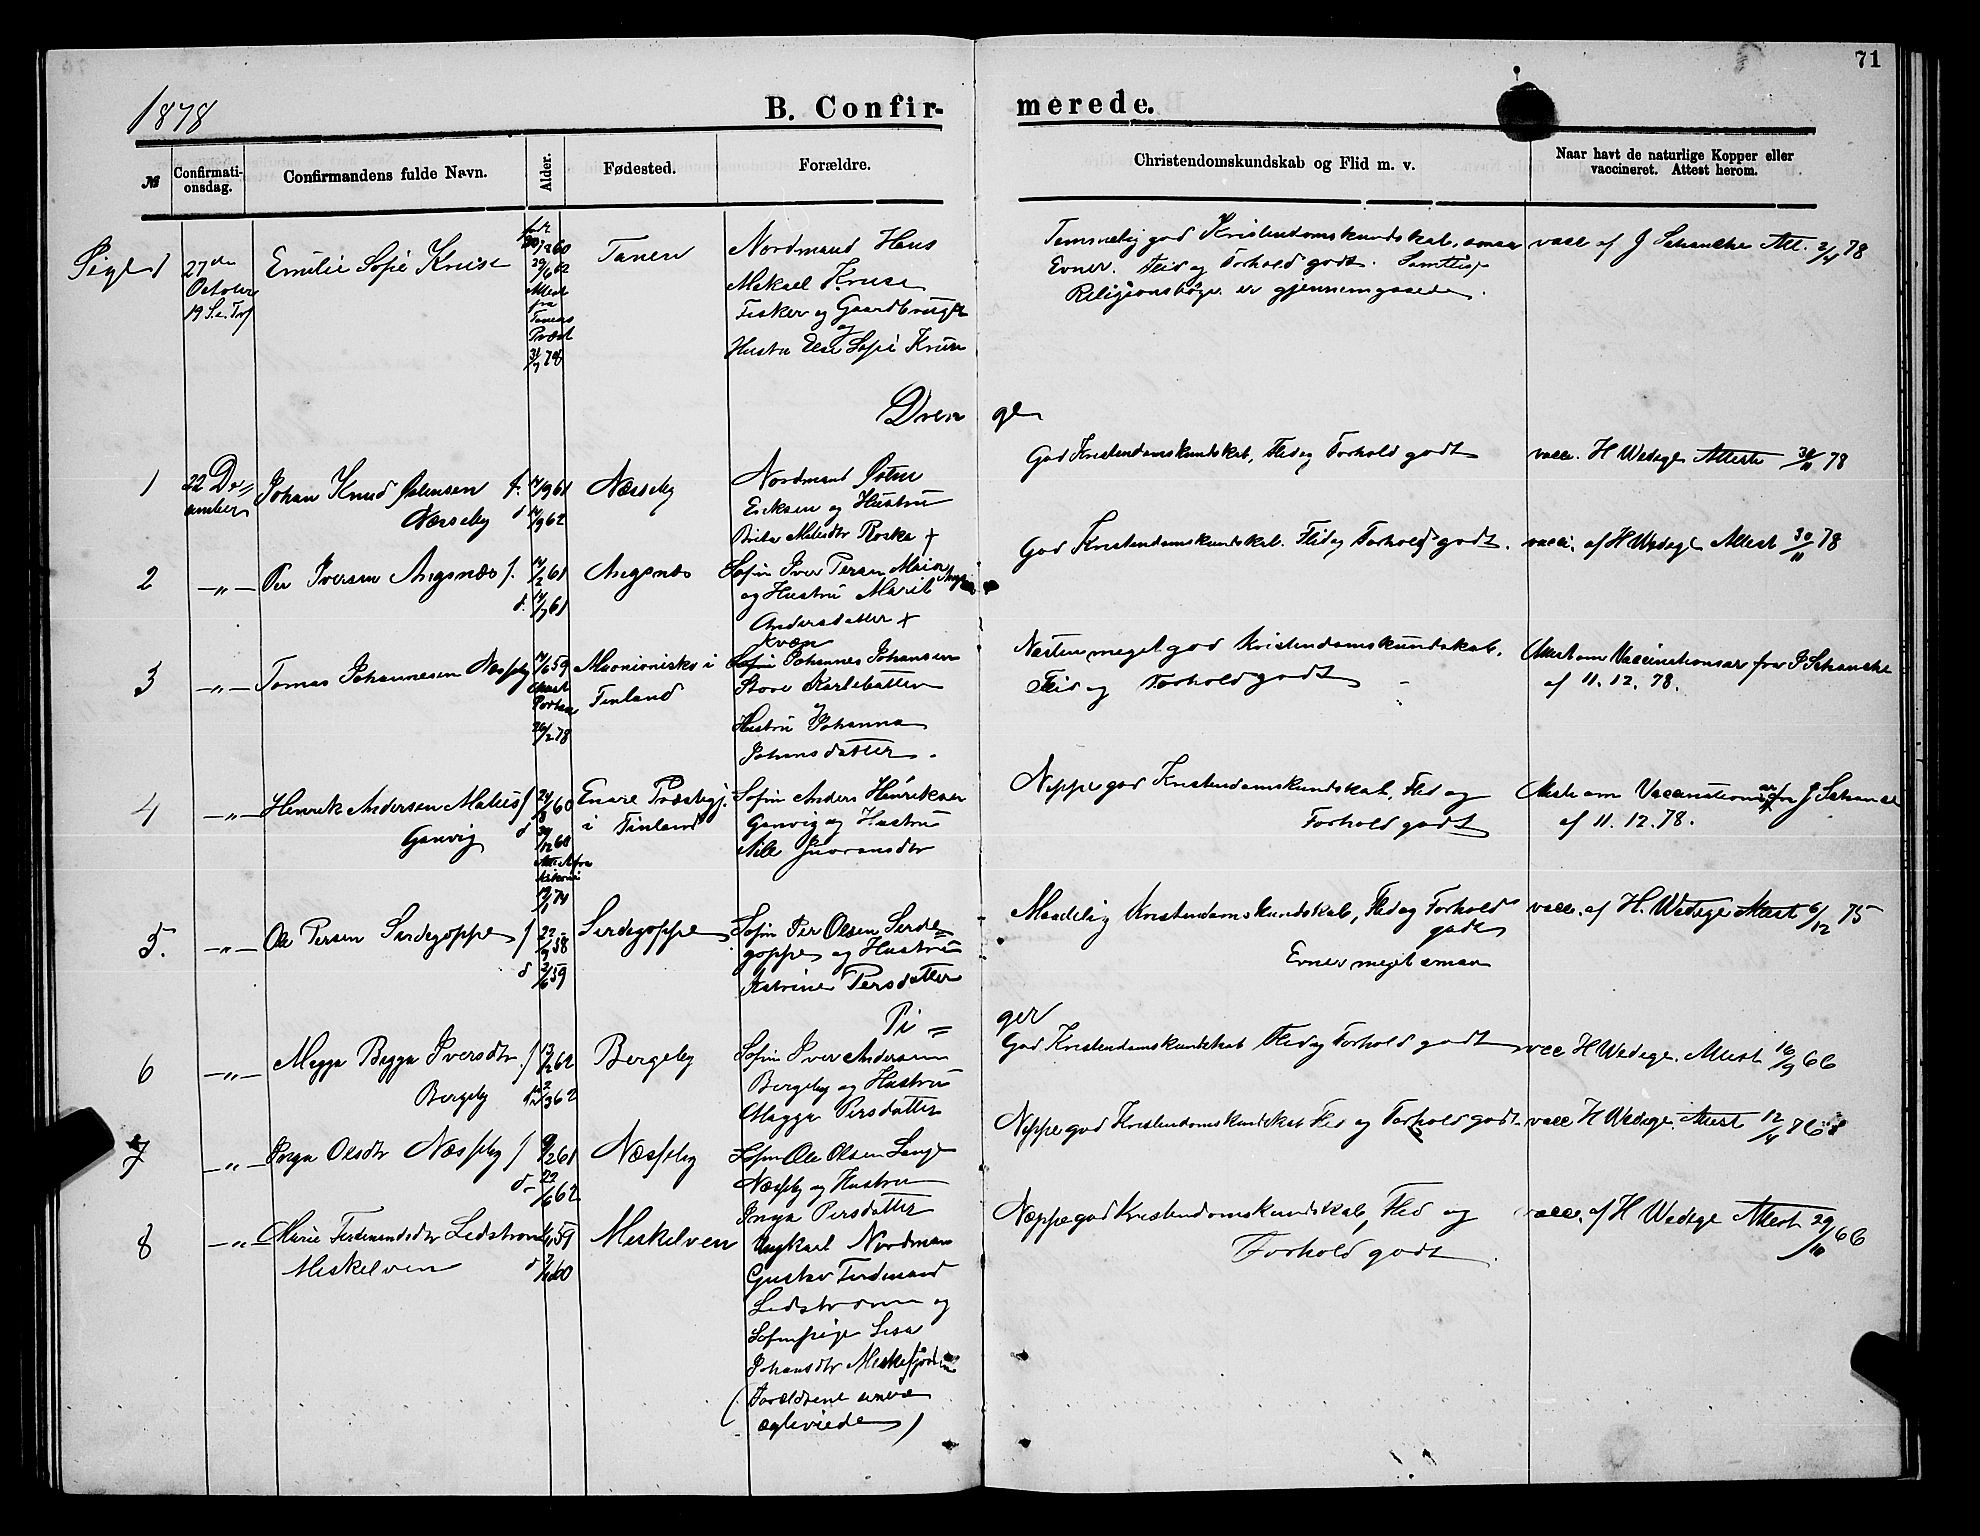 71
1878
B. Confirmerede.
№
Confirmationsdag.
Confirmandens fulde Navn.
Alder.
Fødested.
Forældre.
Christendomskundskab og Flid m. v.
Naar havt de naturlige Kopper eller
vaccineret. Attest herom.
27de
October
19 S. e. Tref
Emilie Sofie Kruse
29/6 62
Attest
fra
Tanens
Præst
78
Tanen
Nordmand Hans
Mikael Kruse
Fisker og Gaardbruger
og
Hustru Else Sofie Kruse
Temmelig god Kristendomskundskab, smaa
Evner. Flid og Forhold godt. Samtlige
Religionsbøger er gjennemgaaede.
vacc. af J Schanche Att. 2/4 78
Drenge
1
22 Decemberr
Johan Knud Østensen f.
Næsseby d
14/9 61
14/9 62
Næsseby
Nordmand Østen
Eriksen og Hustru
Brita Matisdtr Roska +
God Kristendomskundskab, Flid og Forhold godt
vacc. H Wedege Attest 30/11 78
2
—"—
Per Iversen Angsnæs f.
d.
14/2 61
14/7 61
Angsnæs
Søfin Iver Persen
og Hustru Marit
Andersdatter +
God Kristendomskundskab. Flid og Forhold godt.
vacci. af H Wedege Attest 30/11 78
3
—"—
Tomas Johannesen Næsseby
14/6 59
26/2 78
Muonioniska i
Finland
Kvæn
Søfin Johannes Johansen
Store Karlebotten
Hustru Johanna
Johansdatter.
Næsten meget god Kristendomskundskab.
Flid og Forhold godt
Attest om Vaccination fra J Schanche
af 11. 12. 78.
4
—"—
Henrik Andersen Matius f
Ganvig d
60
Enare Præstegj.
i Finland
Søfin Anders Henriksen
Ganvig og Hustru
Neppe god Kristendomskundskab, Flid og
Forhold godt
Attest om Vaccination fra J Schanche
af 11. 12. 78.
5.
—"—
Ole Persen Sirdagoppe f
d
22/9 58
2/6 59
Sirdagoppe
Søfin Per Olsen Sirdagoppe og Hustru
Katrine Persdatter
Maadelig Kristendomskundskab, Flid og Forhold
godt
Evner meget smaa
vacc. af H. Wedege Attest 6/12 75
Piger
6
—"—
Magga Bigga Iversdtr. f
Bergeby
13/2 62
2/3 62
Bergeby
Søfin Iver Andersen
Bergeby og Hustru
Magga Persdatter
God Kristendomskundskab Flid og Forhold godt
vacc H Wedege. Attest 16/9 66
7
—"—
Inga Olsdtr Næsseby f
d
9/2 61
22/6 62
Næsseby
Søfin Ole Olsen
Næsseby og Hustru
Inga Persdatter
Neppe god Kristendomskundskab Flid og Forhold godt
vacc H Wedege. Attest 12/4
8
—"—
Marie Ferdinandsdtr Ledstrøm
Meskelven d
59
60
Meskelven
Ungkarl Nordman
Gustav Ferdinand
Ledstrøm og
Søfinpige Lisa
Johansdtr Meskefjorden
(Forældrene
ægteviede)
Neppe god Kristendomskundskab, Flid og
Forhold godt.
vacc. af H Wedege Attest 29/10 66